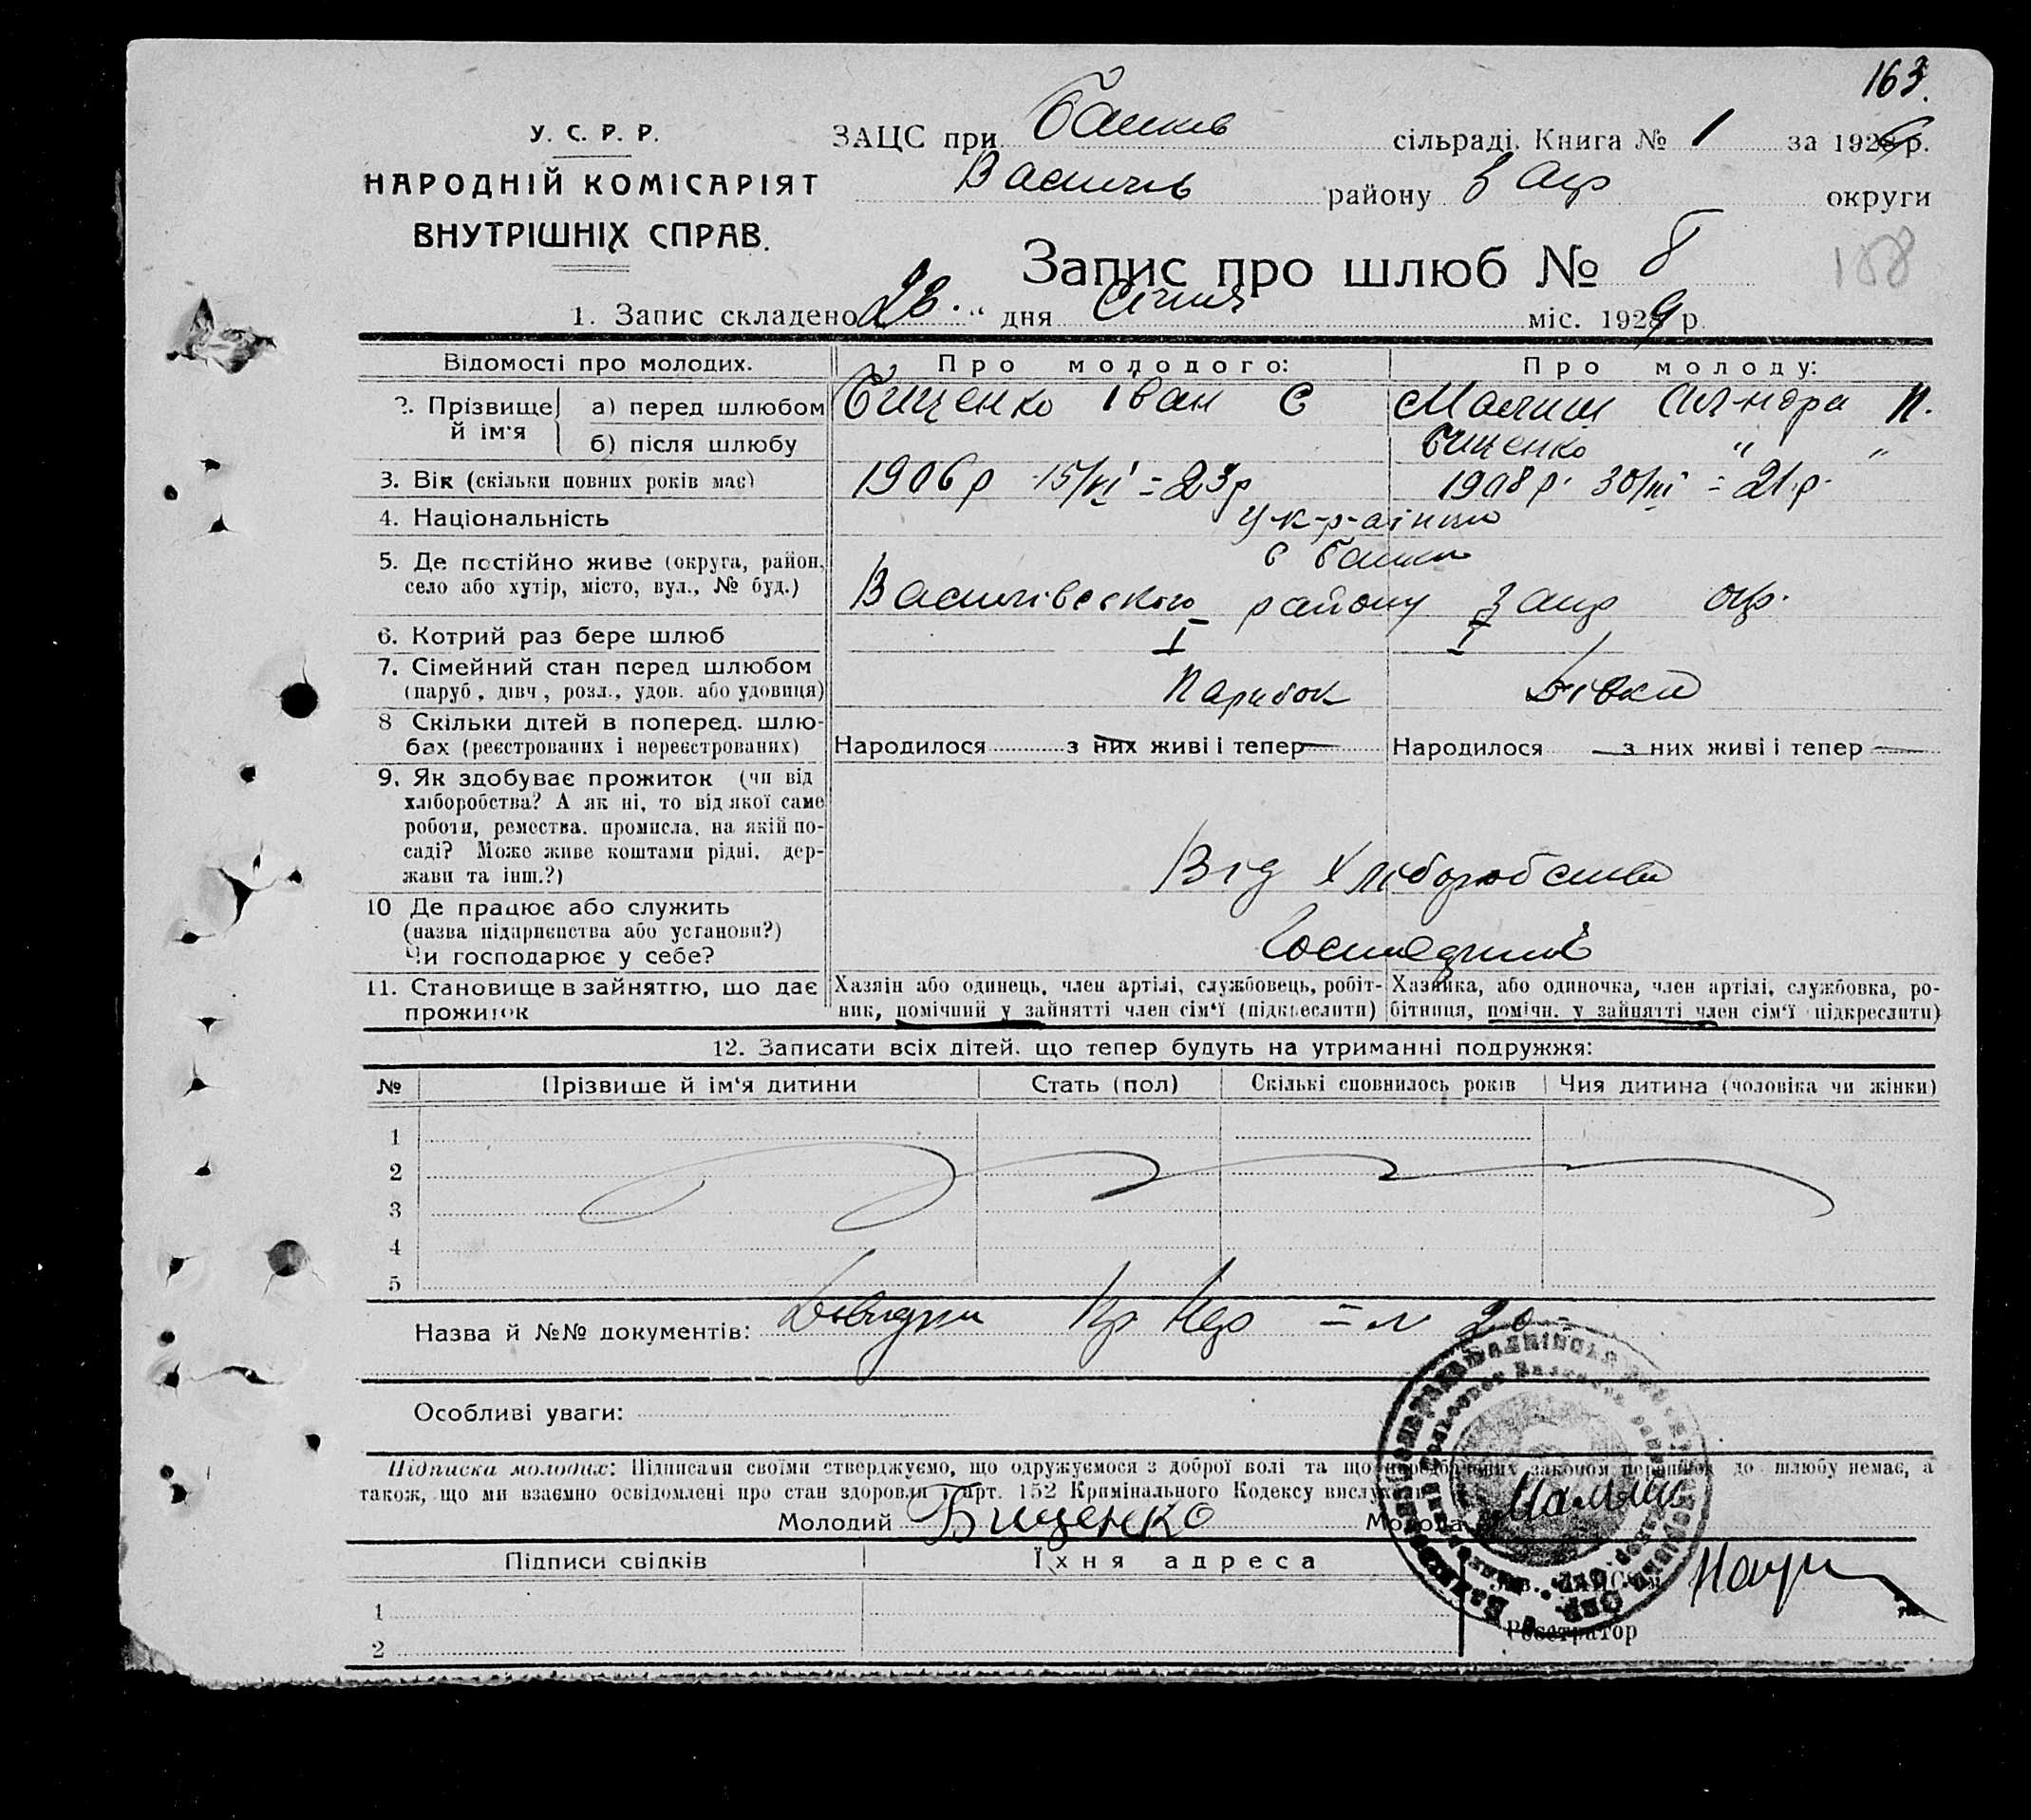 163.
У. С. Р. Р.
НАРОДНІЙ КОМІСАРІЯТ
ВНУТРІШНІХ СПРАВ.
ЗАЦС при Балків сільраді. Книга № 1 за 1929 р.
Василів району Запр округи
Запис про шлюб № 8
188
1. Запис складено 23 " дня Січня міс. 1929 р.
Відомості про молодих. Про молодого: Про молоду:
2. Прізвище й ім'я а) перед шлюбом Бищенко Іван Є Малиш П.
б) після шлюбу Бищенко " "
3. Вік (скільки повних років має) 1906 р 15/VI = 23 р 1908 р. 30/III = 21 р.
4. Національність Ук-р-аінці
5. Де постійно живе (округа, район, село або хутір, місто, вул., № буд.) с Балки
Василівського району Запр окр.
6. Котрий раз бере шлюб I I
7. Сімейний стан перед шлюбом
(паруб., дівч., розл., удов. або удовиця) Парубок Дівка
8 Скільки дітей в поперед. шлю-
бах (реєстрованих і нереєстрованих) Народилося — з них живі і тепер — Народилося — з них живі і тепер —
9. Як здобуває прожиток (чи від
хліборобства? А як ні, то від якої саме
роботи, ремества, промисла, на якій по-
саді? Може живе коштами рідні, дер-
жави та інш.?) Від Хліборобства
10 Де працює або служить
(назва підприємства або установи?)
Чи господарює у себе?
11. Становище в зайняттю, що дає прожиток
Хазяїн або одинець, член артілі, службовець, робіт-
ник, помічний у зайнятті член сім'ї (підкреслити)
Хазяйка, або одиночка, член артілі, службовка, ро-
бітниця, помічн. у зайнятті член сім'ї підкреслити)
12. Записати всіх дітей, що тепер будуть на утриманні подружжя:
№ Прізвище й ім'я дитини Стать (пол) Скількі сповнилось років Чия дитина (чоловіка чи жінки)
1
2
3
4
5
Назва й №№ документів: № 20
Особливі уваги:
Підписка молодих: Підписами своїми стверджуємо, що одружуємося з доброї волі та що передбачених законом перепон до шлюбу немає, а
також, що ми взаємно освідомлені про стан здоровля і арт. 152 Кримінального Кодексу вислухали
Молодий Бищенко Молода Малиш
Підписи свідків Їхня адреса
1
2
Реєстратор